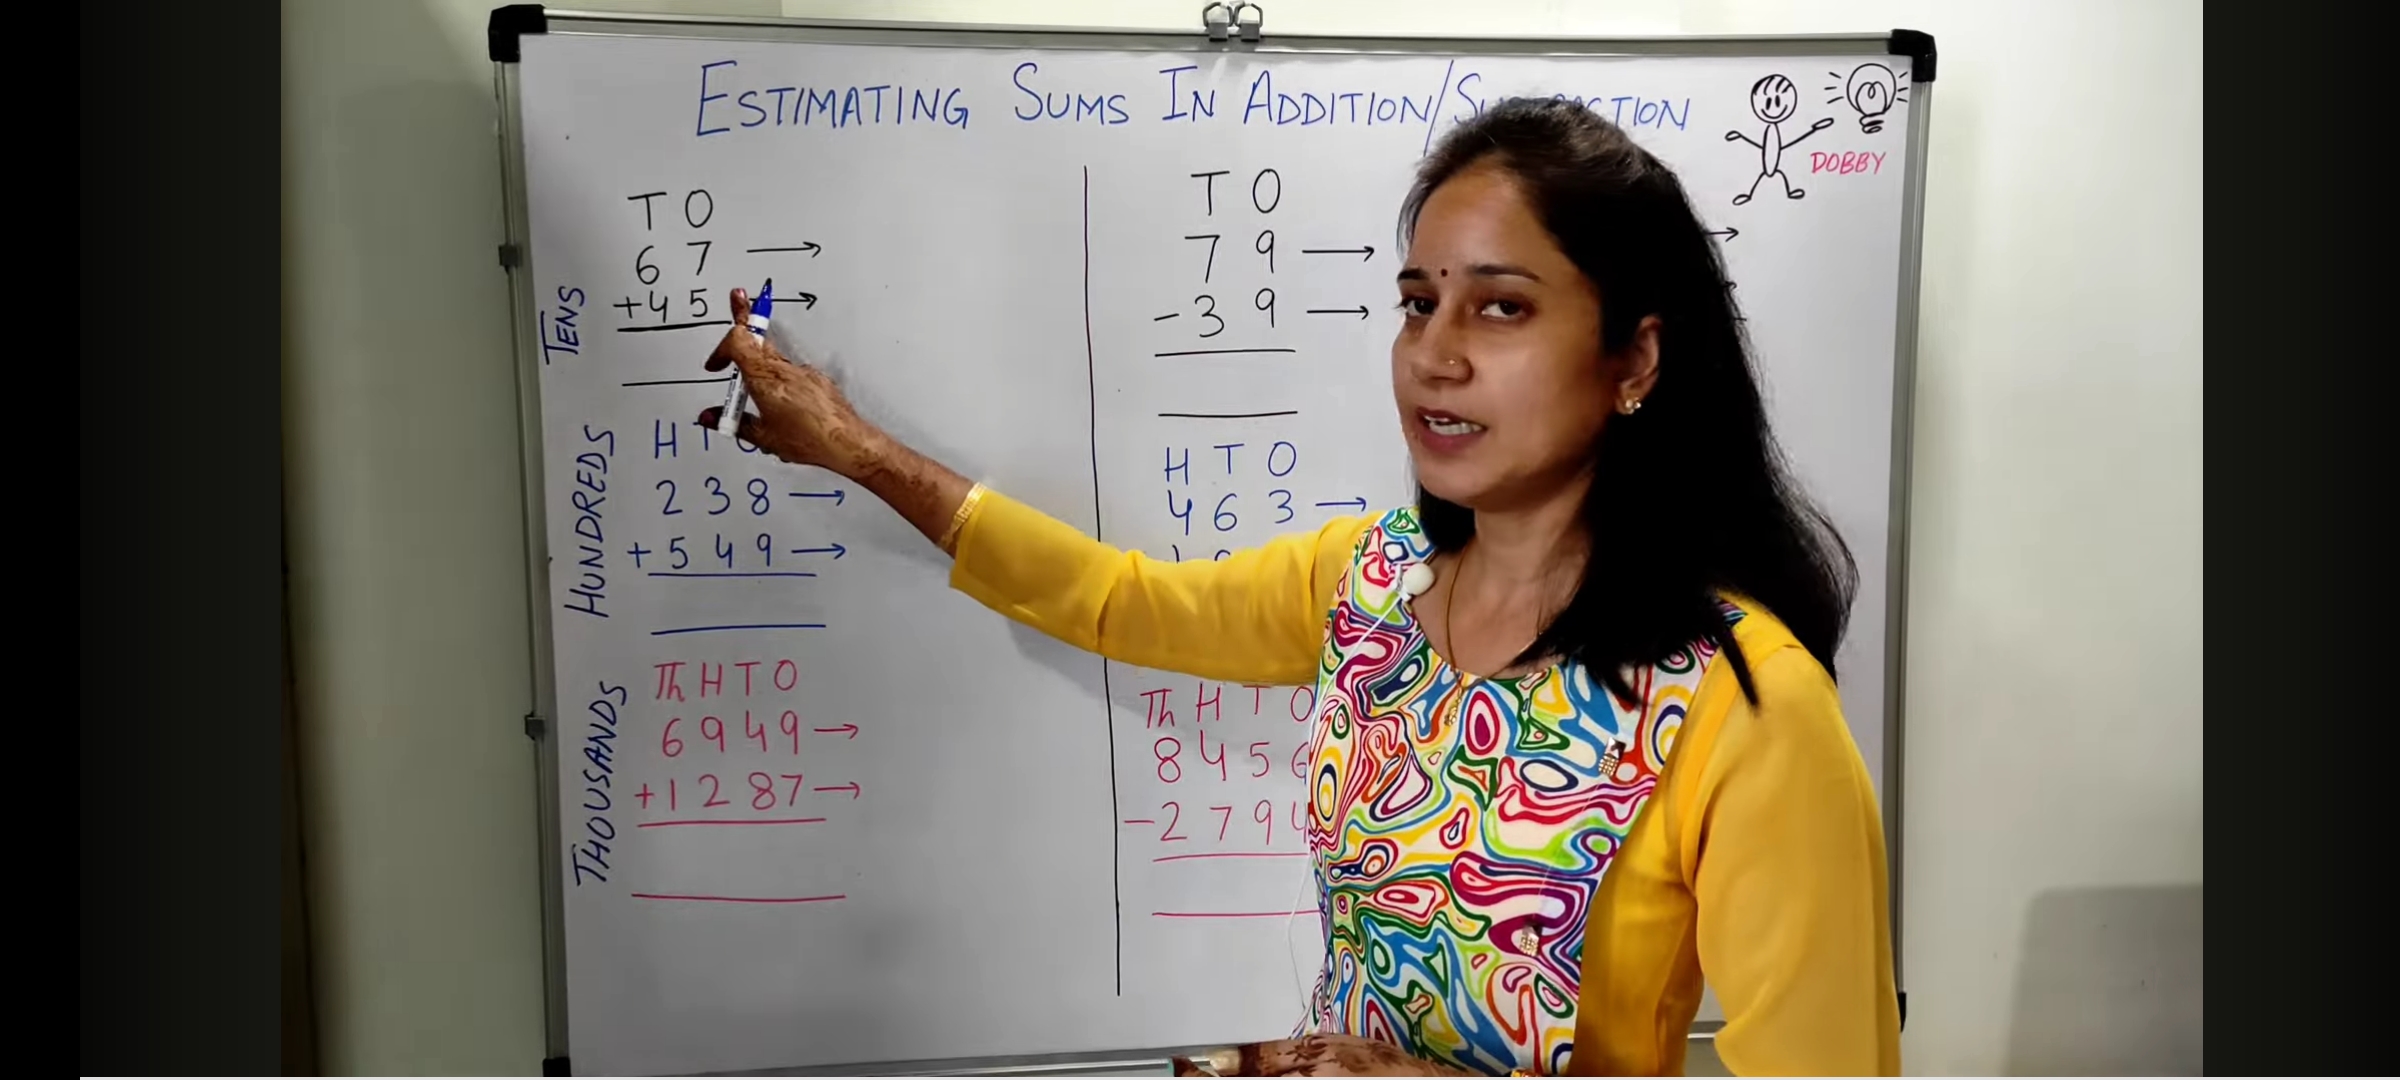 ESTIMATING SUMS IN ADDITION/
DOBBY
TENS
T O
6 7
+ 4 5
HUNDREDS
H T
2 3 8
+ 5 4 9
THOUSANDS
Th H T O
6 9 4 9
+ 1 2 8 7
T O
7 9
- 3 9
H T O
4 6 3
Th H T O
8 4 5 6
- 2 7 9 4